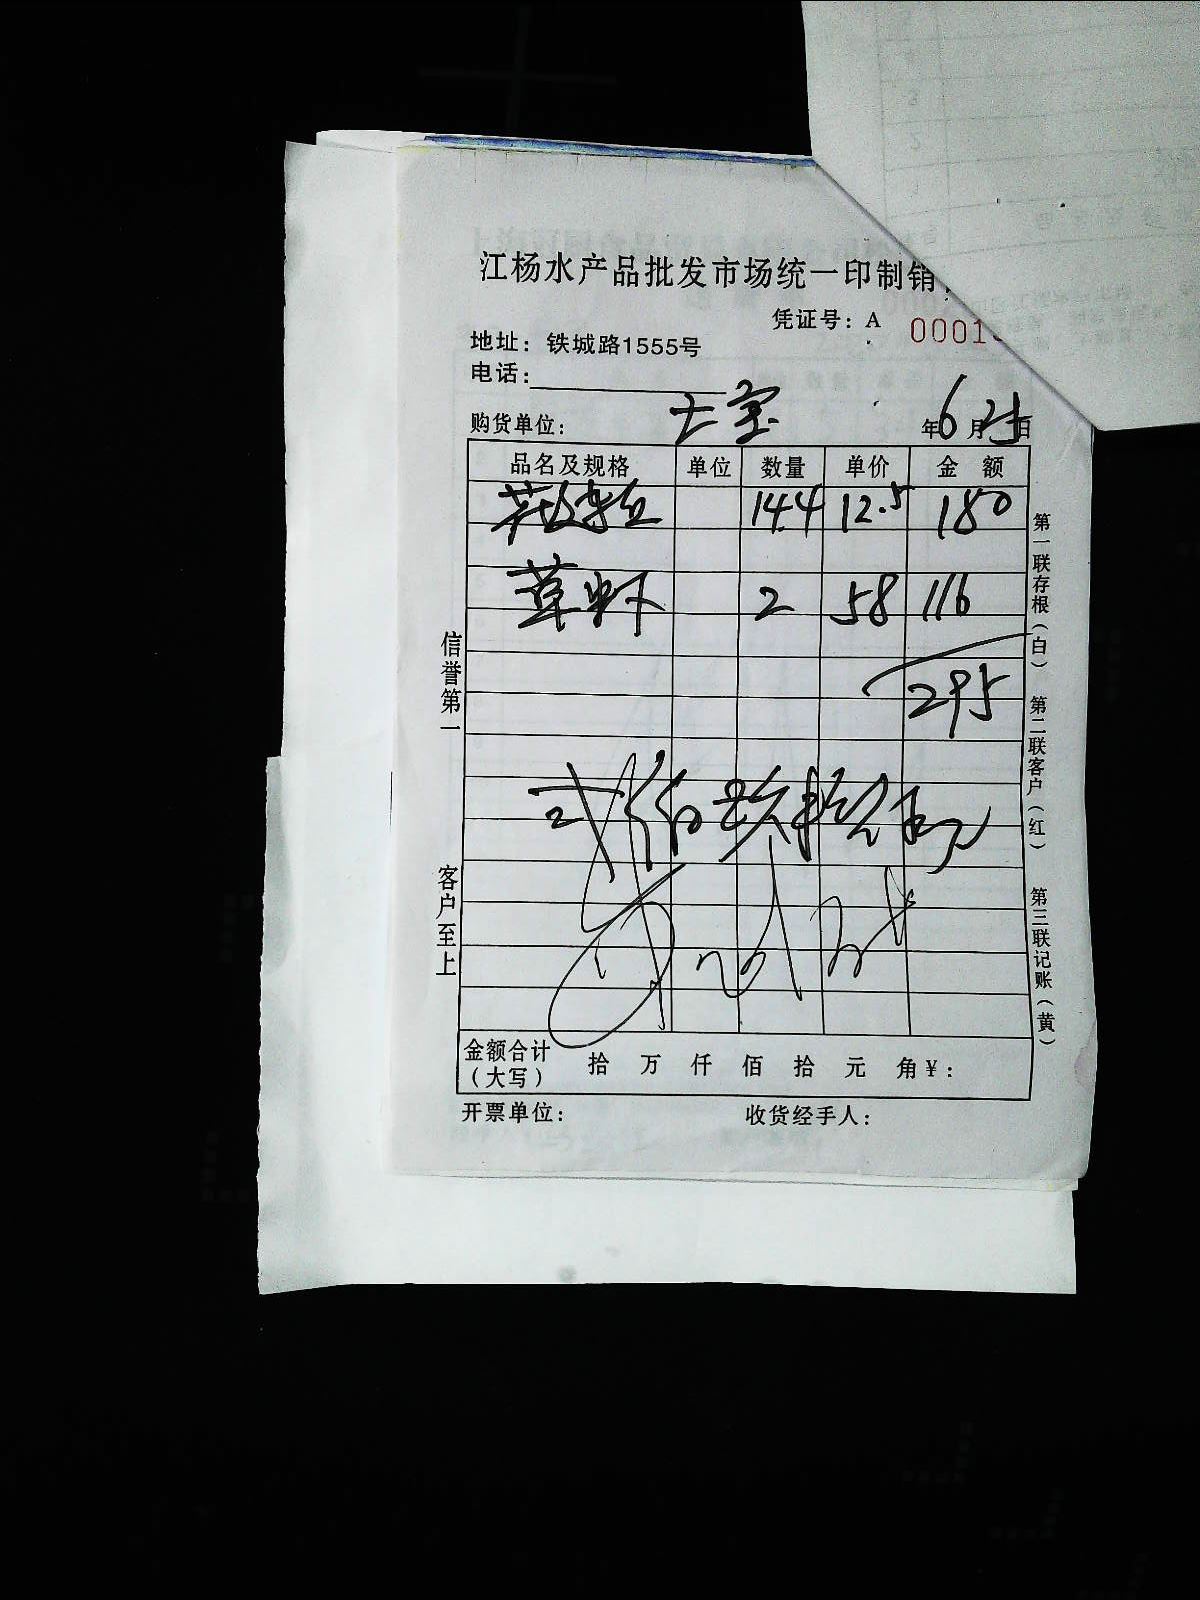 江杨水产品批发市场统一印制销
凭证号：A 0001
地址：铁城路1555号
电话：
购货单位： 七宝 年6月25日
品名及规格 单位 数量 单价 金额
14.4 12.5 180
草虾 2 58 116
295
贰佰玖拾伍元
金额合计（大写） 拾 万 仟 佰 拾 元 角 ¥：
开票单位： 收货经手人：
信誉第一
客户至上
第一联存根（白）
第二联客户（红）
第三联记账（黄）